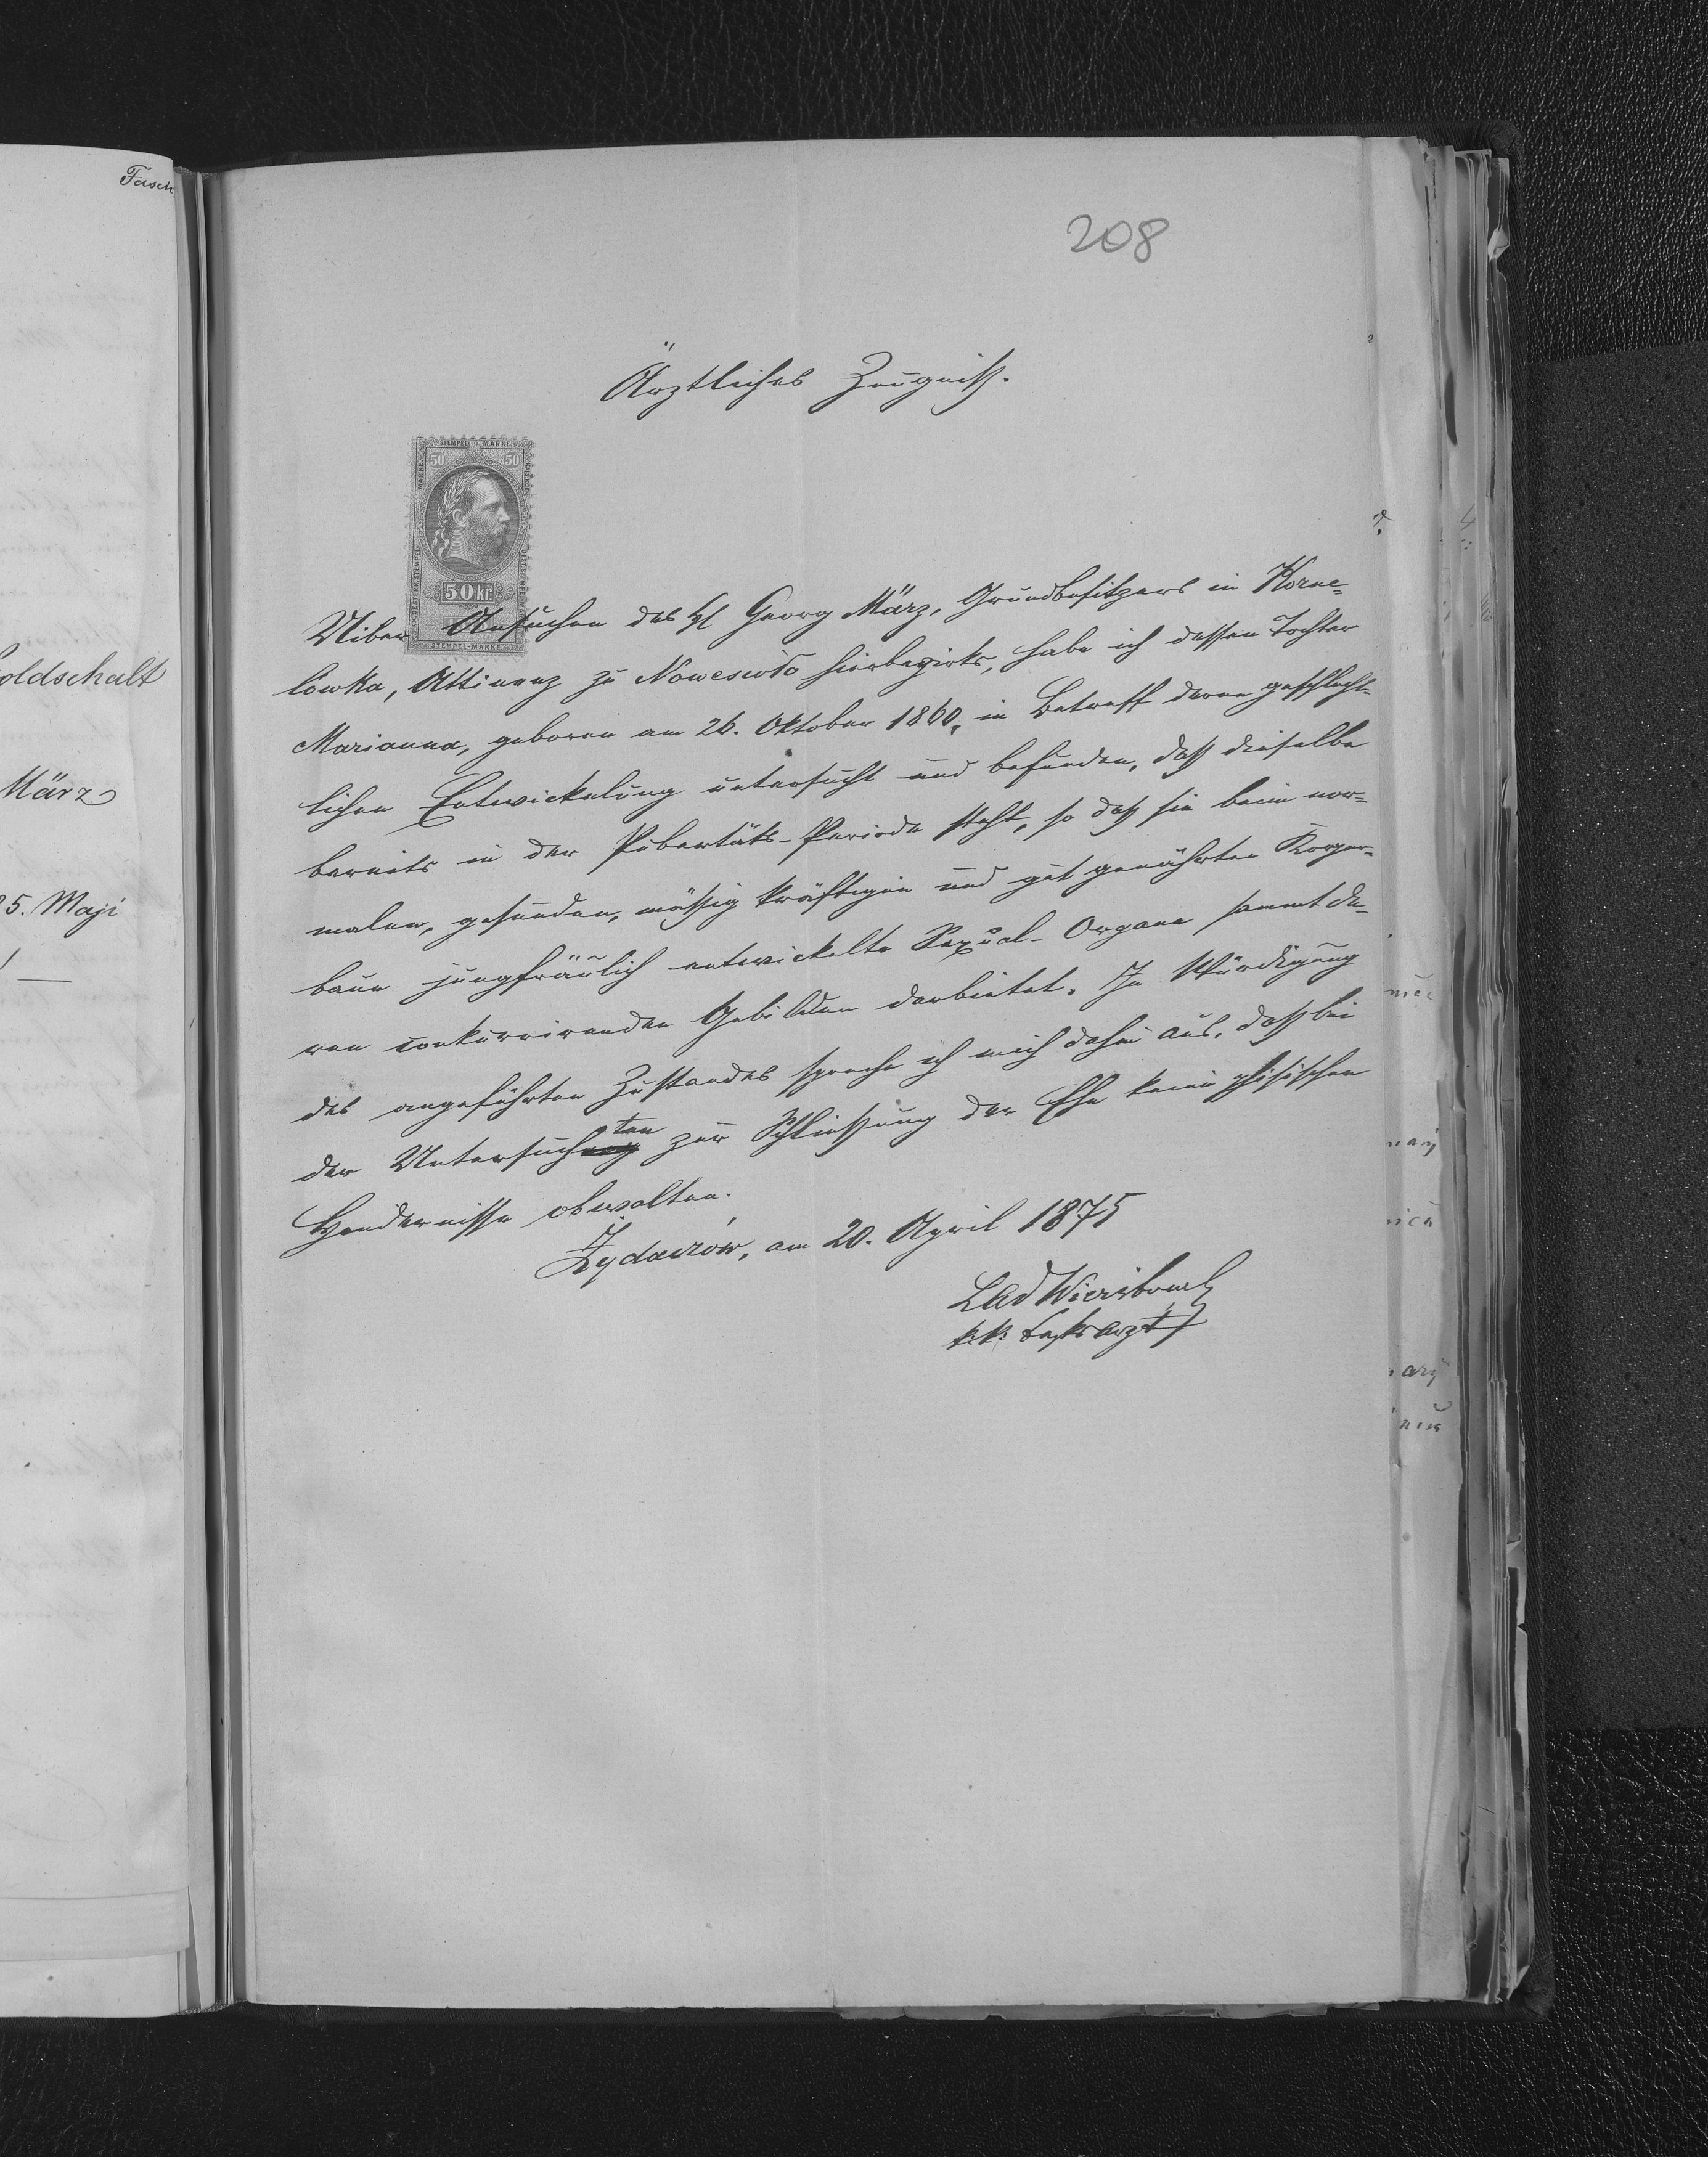 208
Ärztliches Zeugniß.
STEMPEL MARKE
50 50
50 kr
STEMPEL-MARKE
Uiber Ansuchen des H Georg März, Grundbesitzers in Korne-
lówka, Attinenz zu Nowesioło hierbezirks, habe ich dessen Tochter
Marianna, geboren am 26. Oktober 1860, in Betreff deren geschlecht-
lichen Entwickelung untersucht und befunden, daß dieselbe
bereits in der Pubertäts-Periode steht, so daß sie beim nor-
malen, gesunden, mäßig kräftigen und gut genährten Körper-
baue jungfräulich entwickelte Sexual-Organe sammt de-
ren conkurrirenden Gebilden darbietet. In Würdigung
des angeführten Zustandes spreche ich mich dahin aus, daß bei
der Untersuchten zur Schließung der Ehe keine phisischen
Hindernisse obwalten.
Żydaczów, am 20. April 1875
k.k. Bezksarzt
Fasci
oldschalt
März
25. Maji